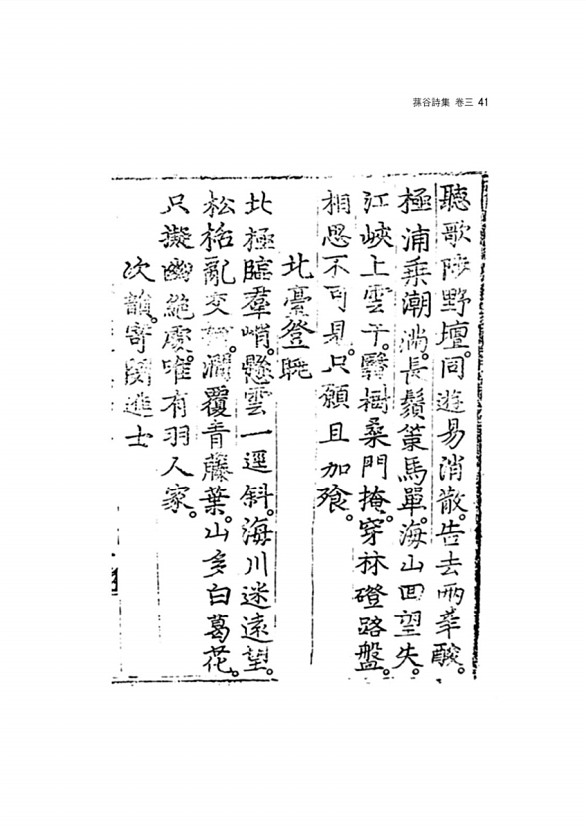 蓀谷詩集 卷三 41
聽歌陟野壇。同遊易消散。告去兩辛酸。
極浦乘潮滿。長鬚策馬單。海山回望失。
江峽上雲干。翳樹桑門掩。穿林磴路盤。
相思不可見。只願且加飱。
北臺登眺
北極臨羣峭。懸雲一逕斜。海川迷遠望。
松栝亂交。澗覆青藤葉。山多白葛花。
只擬幽絶處。唯有羽人家。
次韻。寄閔進士